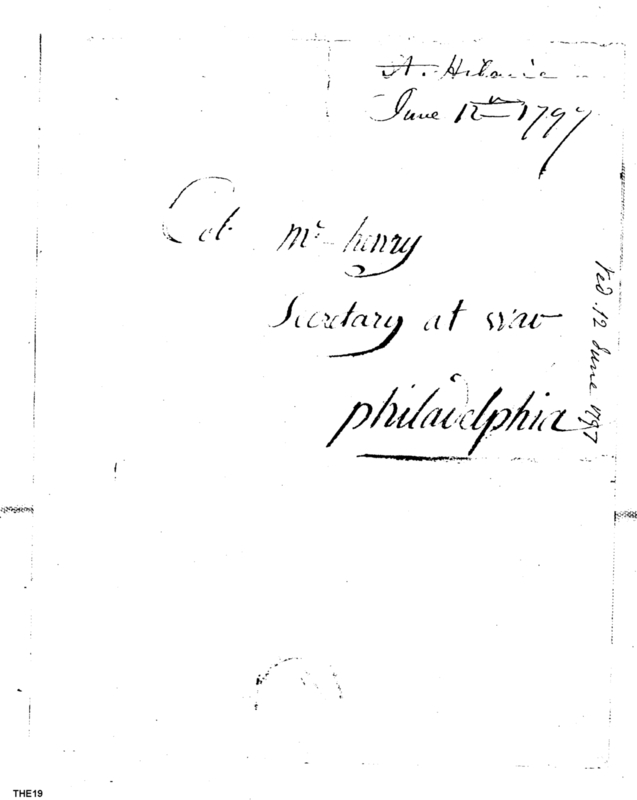 St. Hilaire
June 12th 1797
Col. Mc. henry
Secretary at war
philadelphia
Red. 12 June 1797
THE19